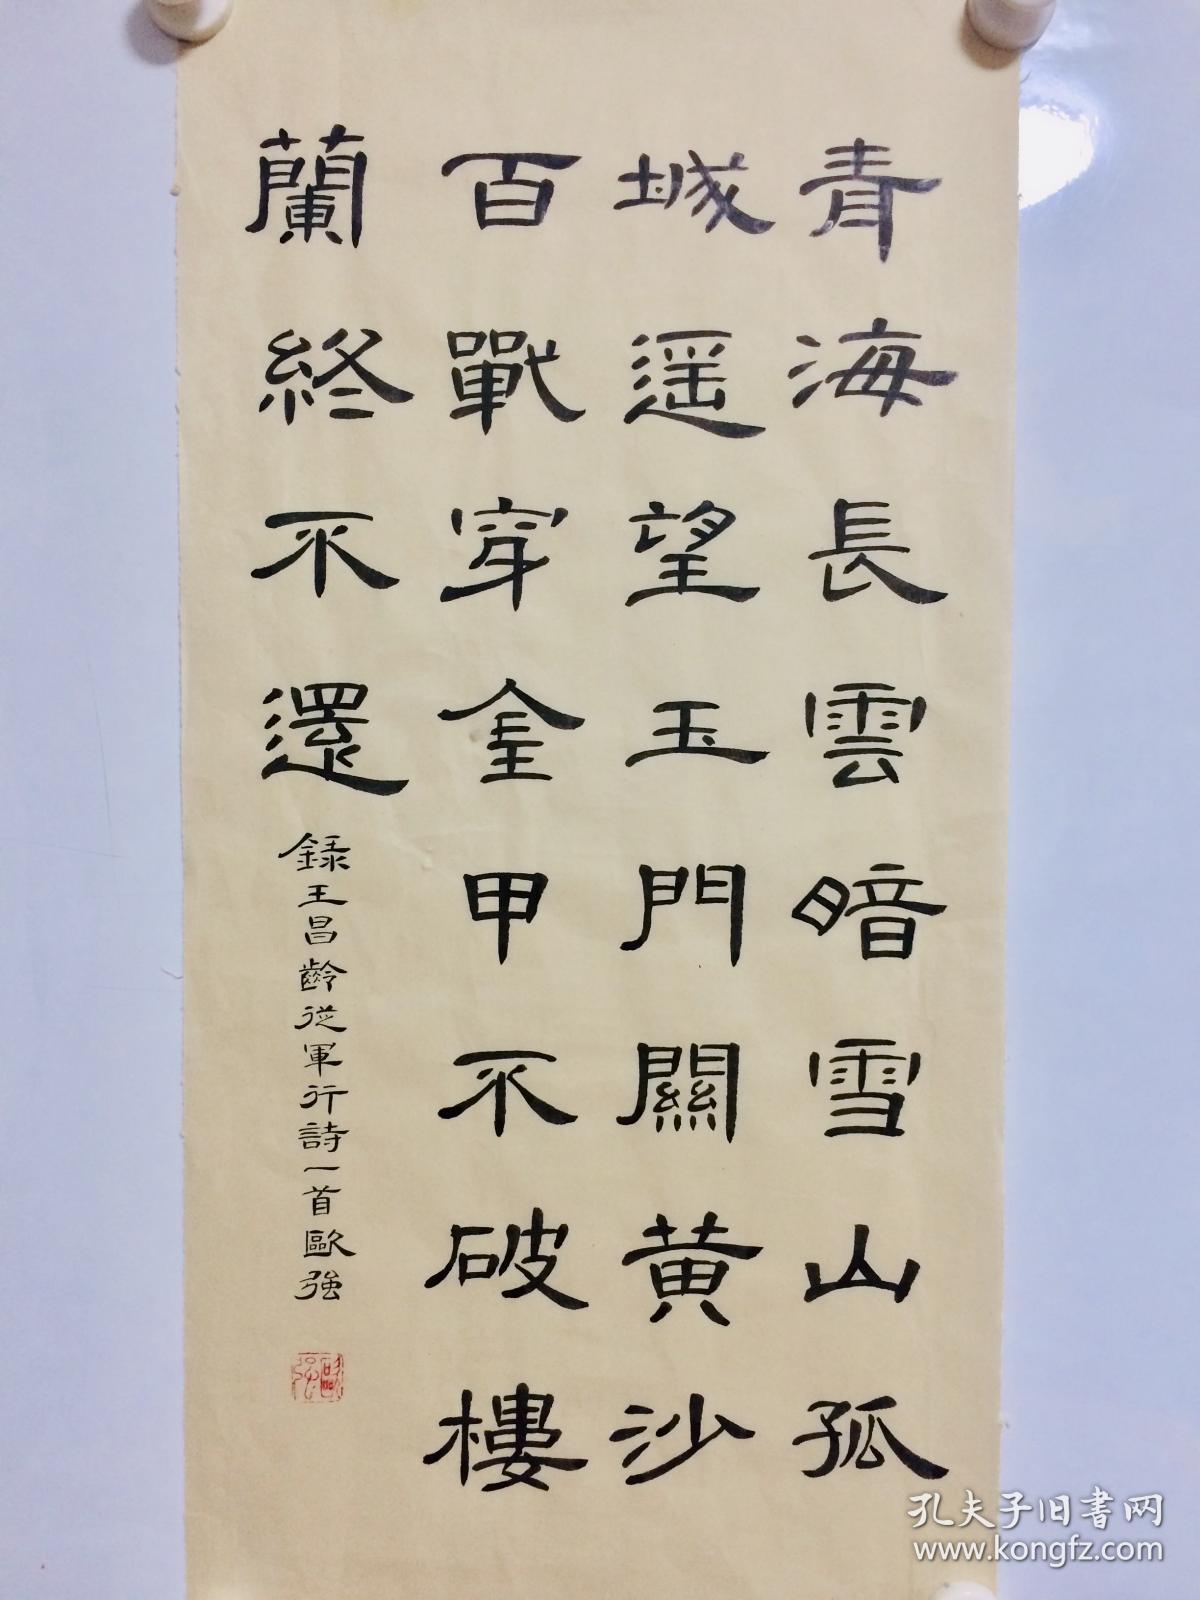 青海長雲暗雪山孤
城遥望玉門關黄沙
百戰穿金甲不破樓
蘭終不還
録王昌齡從軍行詩一首歐強
歐強
孔夫子旧书网
www.kongfz.com